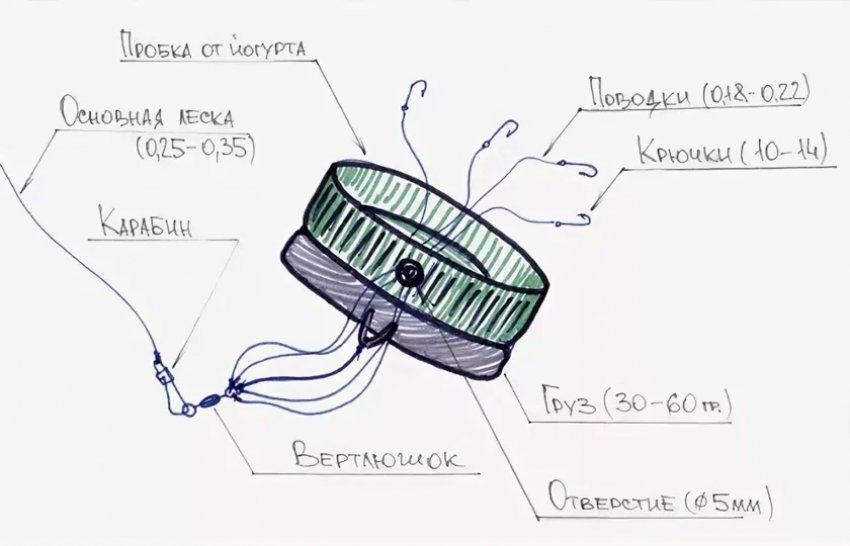 Пробка от йогурта
Основная леска
(0,25-0,35)
Карабин
Поводки (0,18-0,22)
Крючки (10-14)
Груз (30-60 гр.)
Вертлюшок
Отверстие (ø5мм)